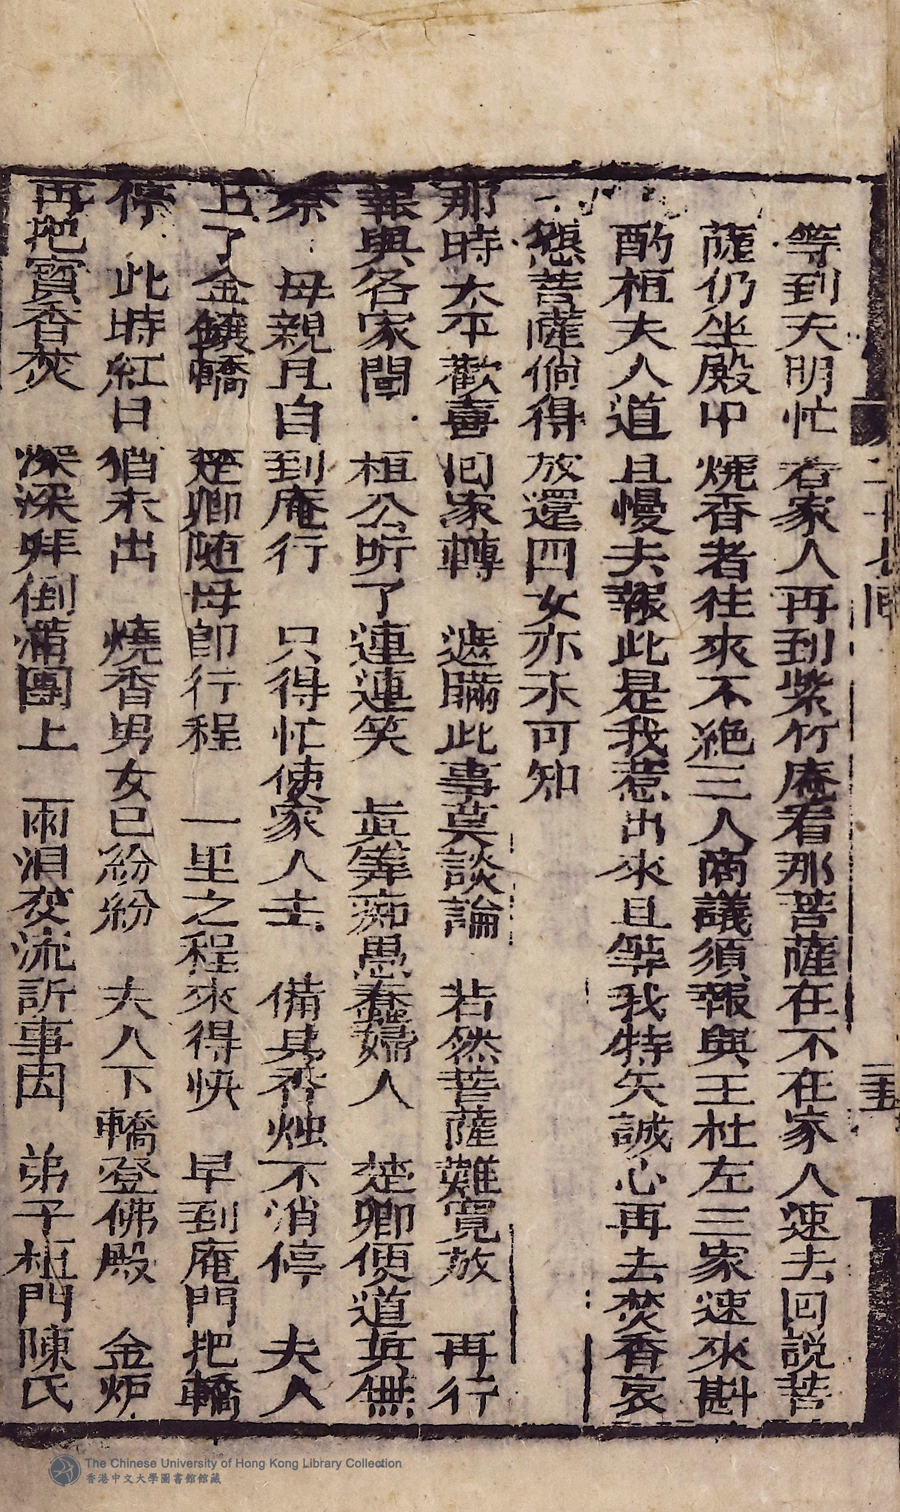 二十七回
三五
等到天明忙着家人再到紫竹庵看那菩薩在不在家人速去回說菩
薩仍坐殿中燒香者往來不絶三人商議須報與王杜左三家速來斟
酌桓夫人道且慢去報此是我惹出來且等我特矢誠心再去焚香哀
懇菩薩倘得放還四女亦未可知
那時太平歡喜回家轉 遮瞞此事莫談論 若然菩薩難寬放 再行
報與各家聞 桓公听了連連笑 真筭痴愚蠢婦人 楚卿便道真無
奈 母親且自到庵行 只得忙使家人去 備具香烛不消停 夫人
上了金鑲轎 楚卿随母即行程 一里之程來得快 早到庵門把轎
停 此時紅日猶未出 燒香男女已紛紛 夫人下轎登佛殿 金炉
再把寳香焚 深深拜倒蒲團上 兩泪交流訴事因 弟子桓門陳氏
The Chinese University of Hong Kong Library Collection
香港中文大學圖書館館藏